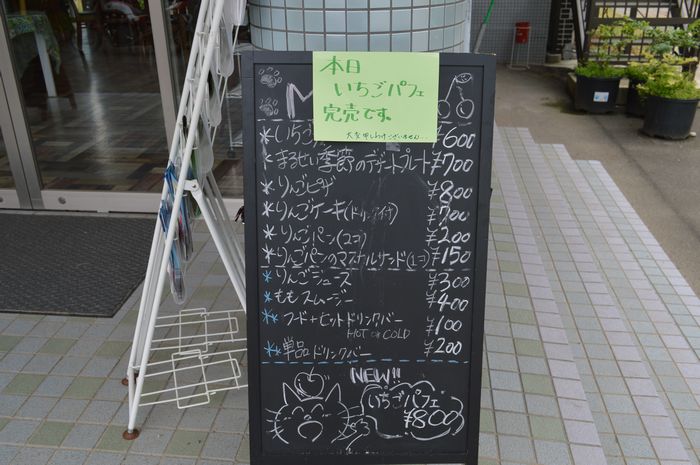 本日
いちごパフェ
完売です。
大変申しわけございません…
M
*いちご ¥600
*まるせい季節のデザートプレート ¥700
*りんごピザ ¥800
*りんごケーキ(ドリンク付) ¥700
*りんごパン(2コ) ¥200
*りんごパンのマスカルサンド(1コ) ¥150
*りんごジュース ¥300
*ももスムージー ¥400
*フード+セットドリンクバー ¥100
HOT or COLD
*単品ドリンクバー ¥200
NEW!!
いちごパフェ
¥800